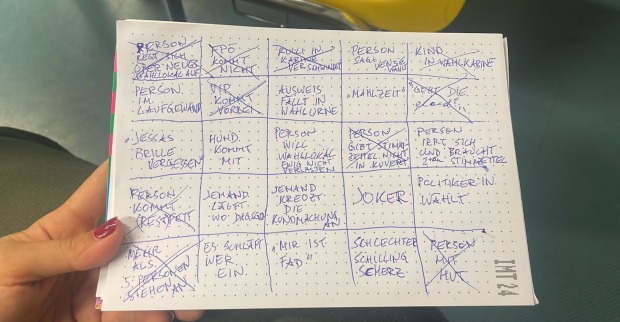 PERSON
REGT SICH
ÜBER NEUES
WAHLLOKAL AUF
FPÖ
KOMMT
NICHT
KULI IN
KABINE
VERSCHWINDET
PERSON
SAGT
KIND
IN WAHLKABINE
PERSON
IM
LAUFGEWAND
VIP
KOMMT
VORBEI
AUSWEIS
FÄLLT IN
WAHLURNE
"MAHLZEIT"
"GEHT DIE
"JESSAS
BRILLE
VERGESSEN
HUND
KOMMT
MIT
PERSON
WILL
WAHLLOKAL
EWIG NICHT
VERLASSEN
PERSON
GIBT STIMM-
ZETTEL NICHT
IN KUVERT
PERSON
IRRT SICH
UND BRAUCHT
2ten STIMMZETTEL
PERSON
KOMMT
RESTFETT
JEMAND
LÄUFT
WO DAGEGEN
JEMAND
KREUZT
DIE
KUNDMACHUNG
AN
JOKER
POLITIKER:IN
WÄHLT
MEHR
ALS
5 PERSONEN
STEHEN AN
ES SCHLÄFT
WER
EIN
"MIR IST
FAD"
SCHLECHTER
SCHILLING
SCHERZ
PERSON
MIT
HUT
IMT 24